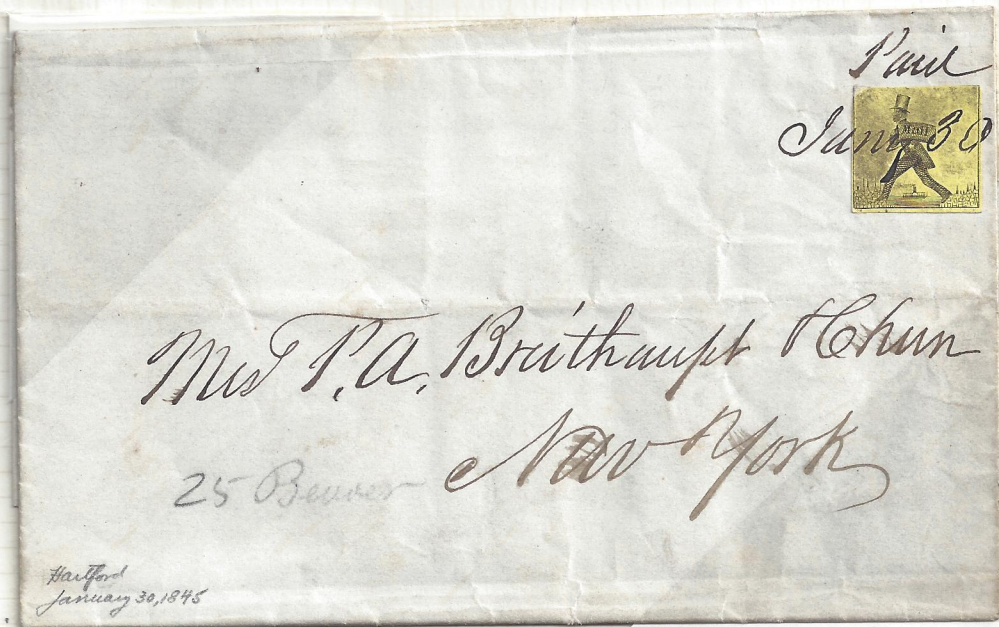 Paid
Jany 30
Mail
Mess P. A. Breithaupt & Chun
New York
25 Beaver
Hartford
January 30, 1845